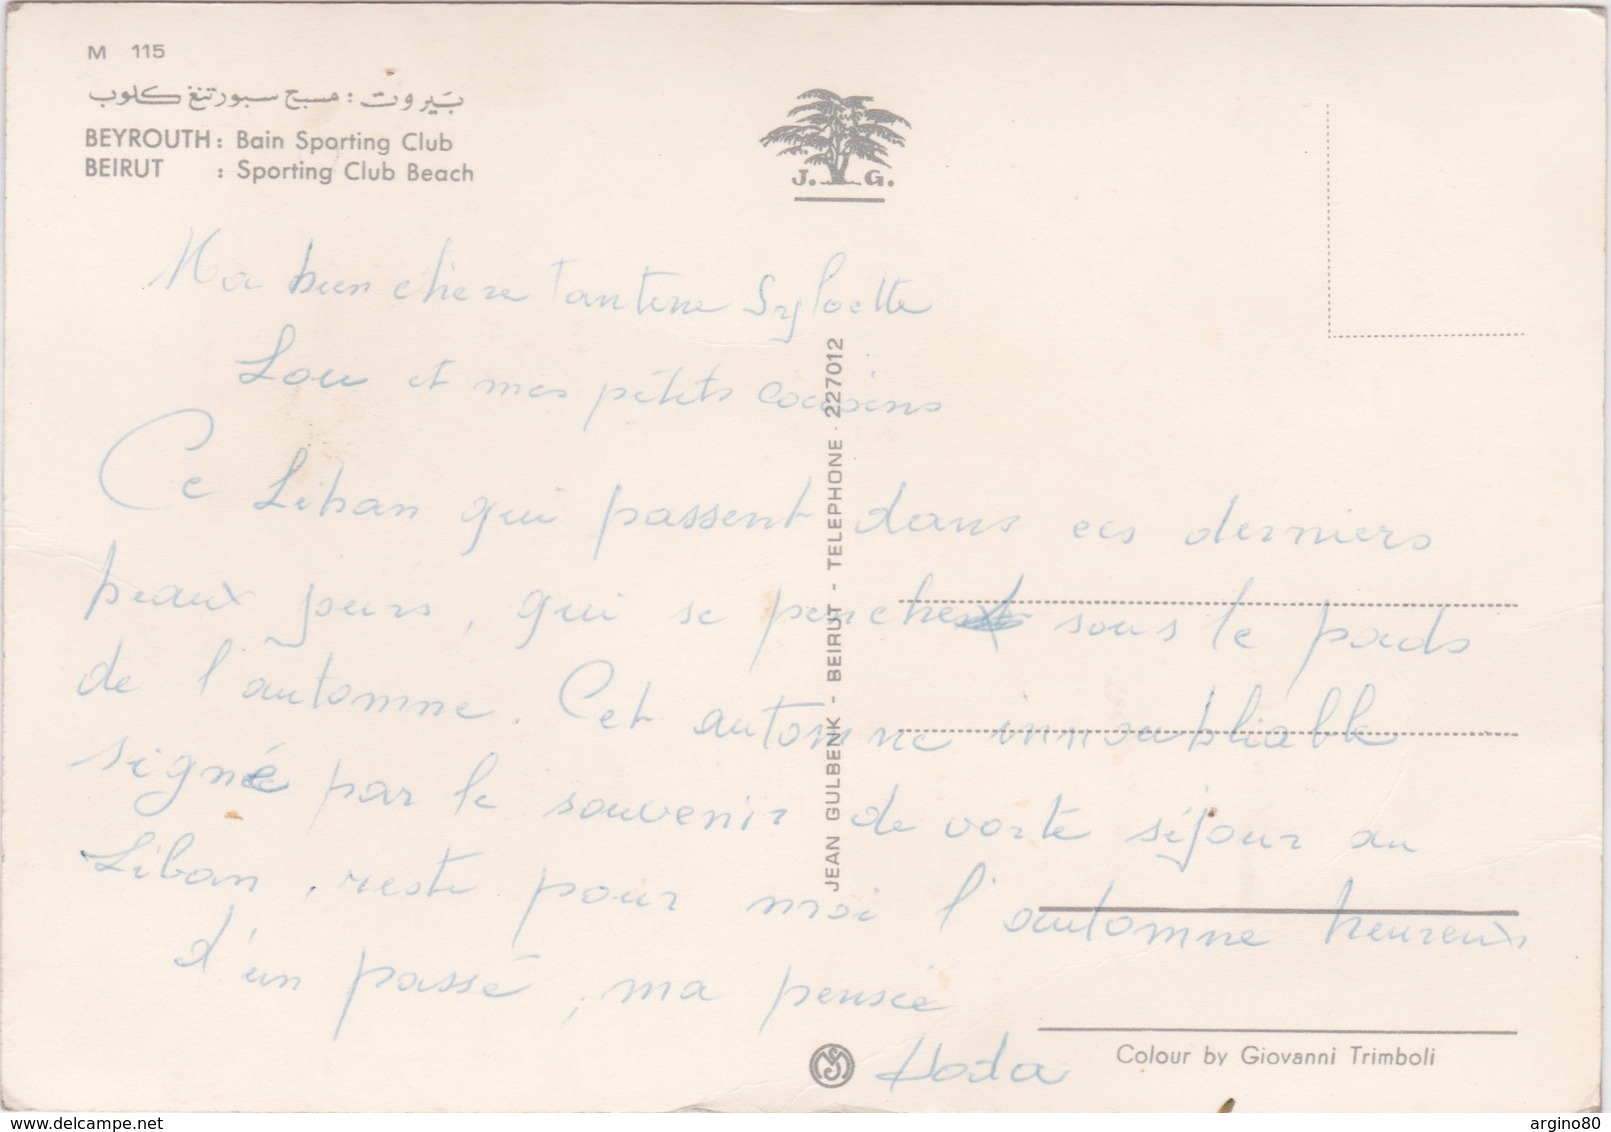 M 115
بيروت : مسبح سبورتنغ كلوب
BEYROUTH : Bain Sporting Club
BEIRUT : Sporting Club Beach
J. G.
Ma bien chère Tantine Sylvette
Lou et mes pétits cousins
Ce Liban qui passent dans ces derniers
beaux jours, qui se penche sous le poids
de l'automne. Cet automne innoubliable
signé par le souvenir de vorte séjour au
Liban, reste pour moi l'automne heureux
d'un passé, ma pensée
Hoda
JEAN GULBENK - BEIRUT - TELEPHONE · 227012
Colour by Giovanni Trimboli
delcampe.net
argino80